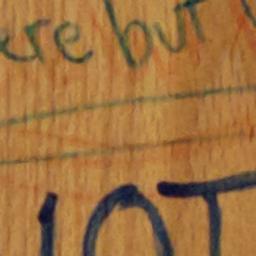 ere but
IOT